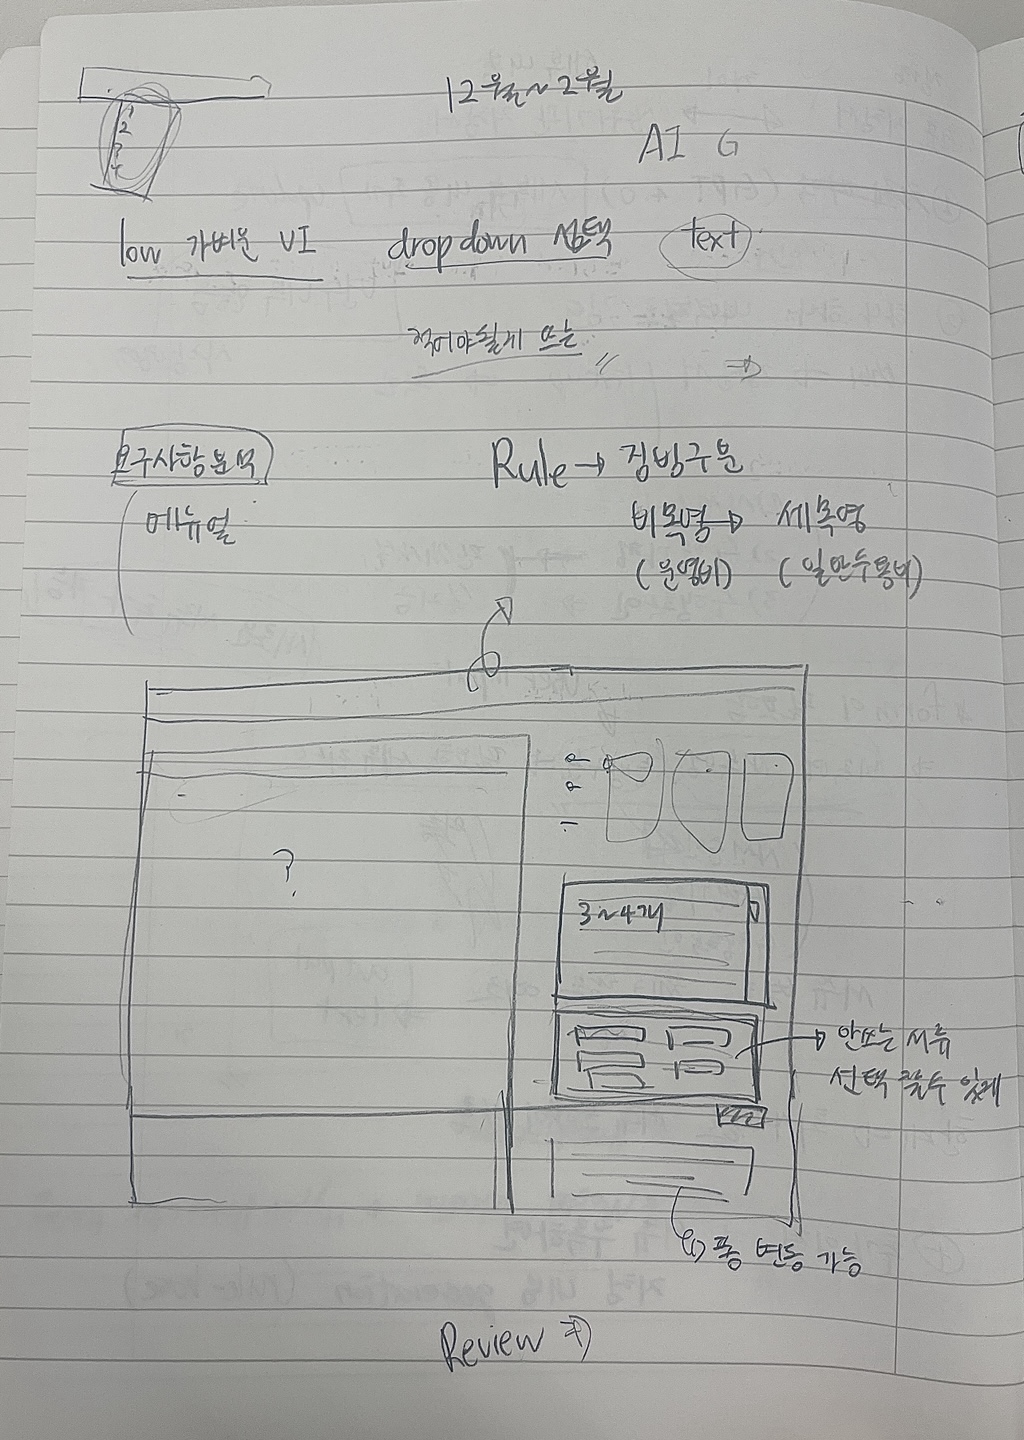 12월~2월
1
2
3
4
AI G
low 가벼운 UI dropdown 선택 text
적어야할게 뜨는 〃 →
요구사항분석
메뉴얼
Rule → 집빙구분
비목명 → 세목명
(운영비) (일반수용비)
?
3~4개
→ 안뜨는 서류
선택 할수 있게
폼 변동 가능
Review ⇒